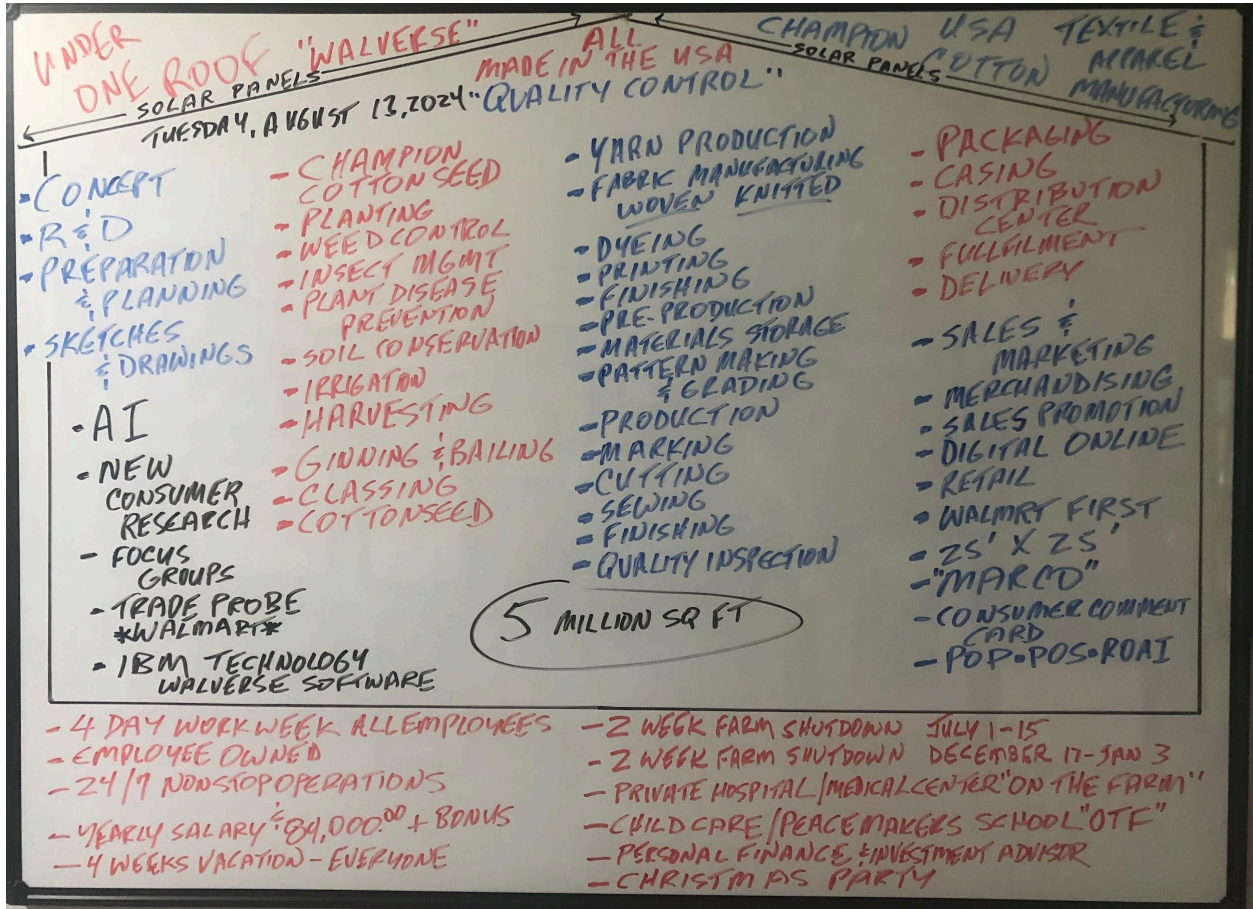 UNDER
ONE ROOF "WALVERSE"
ALL
MADE IN THE USA
CHAMPION USA TEXTILE &
COTTON APPAREL
MANUFACTURING
SOLAR PANELS
SOLAR PANELS
TUESDAY, AUGUST 13, 2024 "QUALITY CONTROL"
- CONCEPT
- R & D
- PREPARATION
& PLANNING
- SKETCHES
& DRAWINGS
- AI
- NEW
CONSUMER
RESEARCH
- FOCUS
GROUPS
- TRADE PROBE
*WALMART*
- IBM TECHNOLOGY
WALVERSE SOFTWARE
- CHAMPION
COTTON SEED
- PLANTING
- WEED CONTROL
- INSECT MGMT
- PLANT DISEASE
PREVENTION
- SOIL CONSERVATION
- IRRIGATON
- HARVESTING
- GINNING & BAILING
- CLASSING
- COTTONSEED
- YARN PRODUCTION
- FABRIC MANUFACTURING
WOVEN KNITTED
- DYEING
- PRINTING
- FINISHING
- PRE-PRODUCTION
- MATERIALS STORAGE
- PATTERN MAKING
& GRADING
- PRODUCTION
- MARKING
- CUTTING
- SEWING
- FINISHING
- QUALITY INSPECTION
- PACKAGING
- CASING
- DISTRIBUTION
CENTER
- FULLFILMENT
- DELIVERY
- SALES &
MARKETING
- MERCHANDISING
- SALES PROMOTION
- DIGITAL ONLINE
- RETAIL
- WALMRT FIRST
- 25' X 25'
- "MARCO"
- CONSUMER COMMENT
CARD
- POP•POS•ROAI
5 MILLION SQ FT
- 4 DAY WORK WEEK ALL EMPLOYEES
- EMPLOYEE OWNED
- 24/7 NONSTOP OPERATIONS
- YEARLY SALARY $84,000.00 + BONUS
- 4 WEEKS VACATION - EVERYONE
- 2 WEEK FARM SHUTDOWN JULY 1-15
- 2 WEEK FARM SHUTDOWN DECEMBER 17-JAN 3
- PRIVATE HOSPITAL/MEDICAL CENTER "ON THE FARM"
- CHILD CARE/PEACEMAKERS SCHOOL "OTF"
- PERSONAL FINANCE & INVESTMENT ADVISOR
- CHRISTMAS PARTY